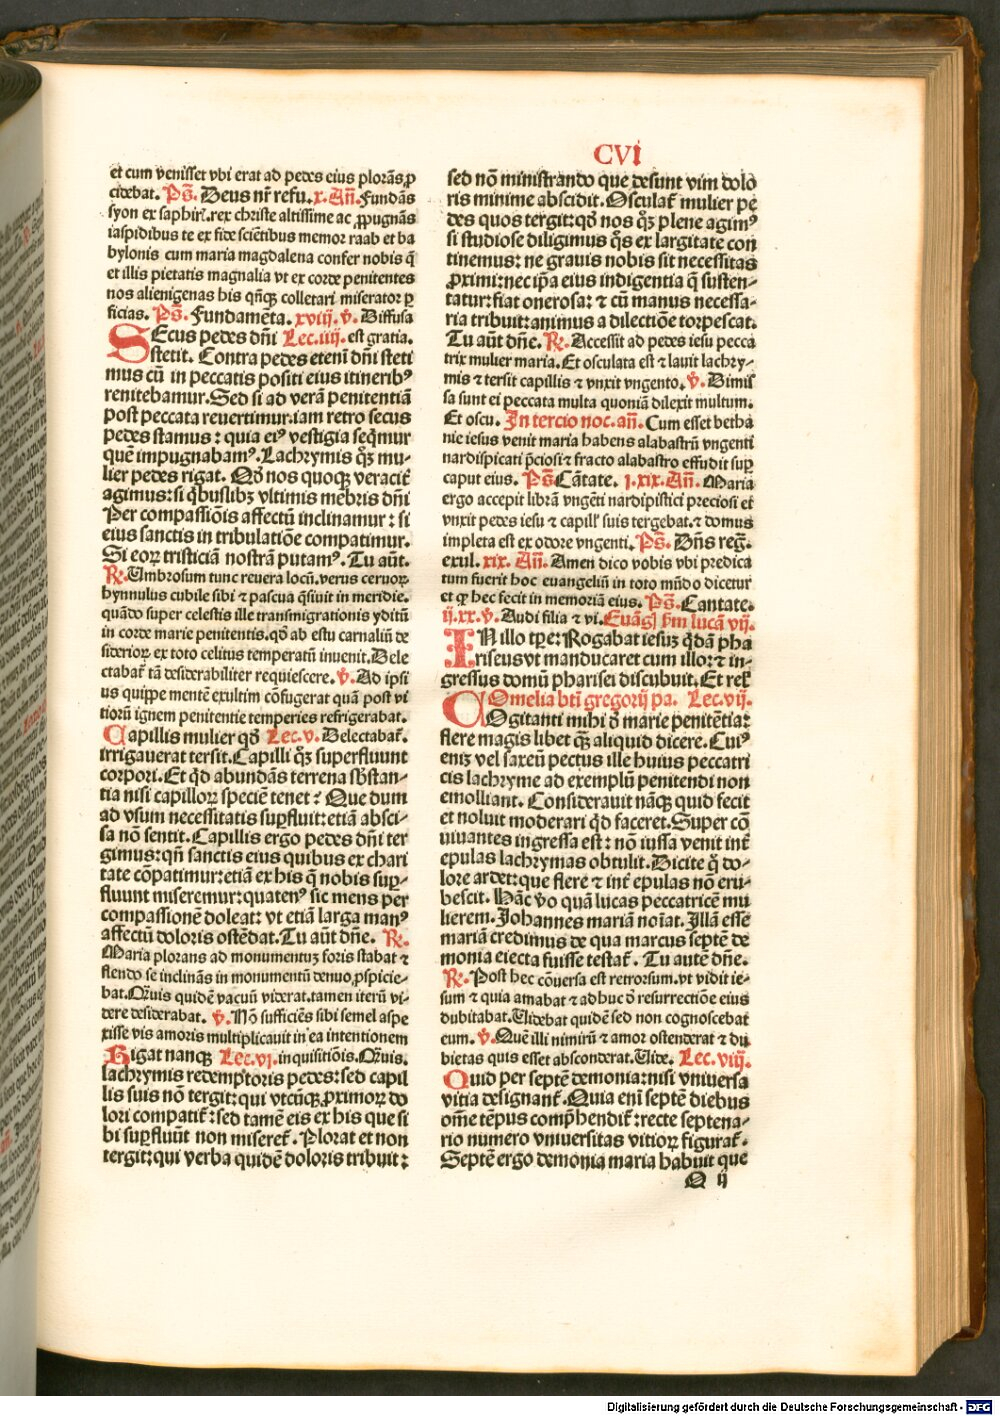 CVI
et cum venisset vbi erat ad pedes eius plorãs ꝓ
cidebat. Ps̃. Deus nr̃ refu. x. Añ. Fundãs
syon ex saphirꝭ. rex christe altissime ac ꝓpugnãs
iaspidibus te ex fide sciẽtibus memor raab et ba
bylonis cum maria magdalena confer nobis q̃
et illis pietatis magnalia vt ex corde penitentes
nos alienigenas his qñqꝫ colletari miserator ꝑ
ficias. Ps̃. Fundamẽta. xviij. v̉. Diffusa
SEcus pedes dñi Lec.iiij. est gratia.
stetit. Contra pedes eteni dñi steti
mus cũ in peccatis positi eius itineribꝰ
renitebamur. Sed si ad verã penitentiã
post peccata reuertimur. iam retro secus
pedes stamus : quia eiꝰ vestigia seq̃mur
quẽ impugnabamꝰ. Lachrymis qꝫ mu-
lier pedes rigat. Qđ nos quoqꝫ veracit̃
agimus: si qͥbuslibꝫ vltimis mẽbris dñi
Per compassiõis affectũ inclinamur : si
eius sanctis in tribulatiõe compatimur.
Si eoꝝ tristiciã nostrã putamꝰ. Tu aũt.
℞. Umbrosum tunc reuera locũ. verus ceruoꝝ
hynnulus cubile sibi ⁊ pascua q̃siuit in meridie.
quãdo super celestis ille transmigrationis yditũ
in corde marie penitentis. qđ ab estu carnaliũ de
sideriorꝝ ex toto celitus temperatũ inuenit. Dele
ctabat̃ tã desiderabiliter requiescere. v̉. Ad ipsi
us quippe mentẽ exultim cõfugerat quã post vi
tiorũ ignem penitentie temperies refrigerabat.
Capillis mulier qđ Lec.v. Delectabat̃.
irrigauerat tersit. Capilli qꝫ superfluunt
corpori. Et qͥd abundãs terrena sb̃stan-
tia nisi capilloꝝ speciẽ tenet? Que dum
ad vsum necessitatis suꝑfluit: etiã absci-
sa nõ sentit. Capillis ergo pedes dñi ter
gimus: qñ sanctis eius quibus ex chari
tate cõpatimur: etiã ex his q̃ nobis suꝑ-
fluunt miseremur: quatenꝰ sic mens per
compassionẽ doleat: vt etiã larga manꝰ
affectũ doloris ostẽdat. Tu aũt dñe. ℞.
Maria plorans ad monumentuꝫ foris stabat ⁊
flendo se inclinãs in monumentũ denuo ꝓspicie-
bat. Qͣuis quidẽ vacuũ viderat. tamen iterũ vi-
dere desiderabat. v̉. Nõ sufficiẽs sibi semel aspe
xisse vis amoris multiplicauit in ea intentionem
Rigat nanqꝫ Lec.vj. inquisitiõis. Qͣuis.
lachrymis redemptoris pedes: sed capil
lis suis nõ tergit: qui vtcũqꝫ ꝓximoꝝ do
lori compatit̃: sed tamẽ eis ex his que si
bi suꝑfluũt non miseret̃. Plorat et non
tergit: qui verba quidẽ doloris tribuit:
sed nõ ministrando que desunt vim dolo
ris minime abscidit. Osculat̃ mulier pe
des quos tergit: qđ nos qꝫ plene agimꝰ
si studiose diligimus q̃s ex largitate con
tinemus: ne grauis nobis sit necessitas
ꝓximi: nec ip̃a eius indigentia q̃ susten-
tatur: fiat onerosa: ⁊ cũ manus necessa-
ria tribuit: animus a dilectiõe torpescat.
Tu aũt dñe. ℞. Accessit ad pedes iesu pecca
trix mulier maria. Et osculata est ⁊ lauit lachry-
mis ⁊ tersit capillis ⁊ vnxit vngento. v̉. Dimis
sa sunt ei peccata multa quoniã dilexit multum.
Et oscu. In tercio noc. añ. Cum esset betha
nie iesus venit maria habens alabastrũ vngenti
nardi spicati p̃ciosi ⁊ fracto alabastro effudit suꝑ
caput eius. Ps̃ Cãtate. j. xix. Añ. Maria
ergo accepit librã vngẽti nardi pistici preciosi et
vnxit pedes iesu ⁊ capillꝭ suis tergebat. ⁊ domus
impleta est ex odore vngenti. Ps̃. Dñs reg̃.
exul. xix. Añ. Amen dico vobis vbi predica
tum fuerit hoc euangeliũ in toto mũdo dicetur
et qꝛ hec fecit in memoriã eius. Ps̃. Cantate.
ij. xx. v̉. Audi filia ⁊ vi. Euãgꝭ fm lucã vij.
IN illo tꝑe: Rogabat iesuꝫ qͥdã pha
riseus vt manducaret cum illo: ⁊ in-
gressus domũ pharisei discubuit. Et relꝭ
Omelia bt̃i gregorij pa. Lec.vij.
COgitanti mihi đ marie penitẽtia:
flere magis libet qͣꝫ aliquid dicere. Cuiꝰ
eniꝫ vel saxeũ pectus ille huius peccatri
cis lachryme ad exemplũ penitendi non
emolliant. Considerauit nãqꝫ quid fecit
et noluit moderari qͥd faceret. Super cõ
uiuantes ingressa est: nõ iussa venit int̃
epulas lachrymas obtulit. Dicite q̃ do-
lore ardet: que flere ⁊ int̃ epulas nõ eru-
bescit. Hãc ṽo quã lucas peccatricẽ mu
lierem. Johannes mariã noĩat. Illã esse
mariã credimus de qua marcus septẽ de
monia eiecta fuisse testat̃. Tu autẽ dñe.
℞. Post hec cõuersa est retrorsum. vt vidit ie-
sum ⁊ quia amabat ⁊ adhuc đ resurrectiõe eius
dubitabat. Uidebat quidẽ sed non cognoscebat
eum. v̉. Quẽ illi nimirũ ⁊ amor ostenderat ⁊ du
bietas quis esset absconderat. Uide. Lec.viij.
Quid per septẽ demonia: nisi vniuersa
vitia designant̃. Quia eni septẽ diebus
oẽm tẽpus comp̃hendit̃: recte septena-
rio numero vniuersitas vitioꝝ figurat̃.
Septẽ ergo demonia maria habuit que
O ij
Digitalisierung gefördert durch die Deutsche Forschungsgemeinschaft - DFG